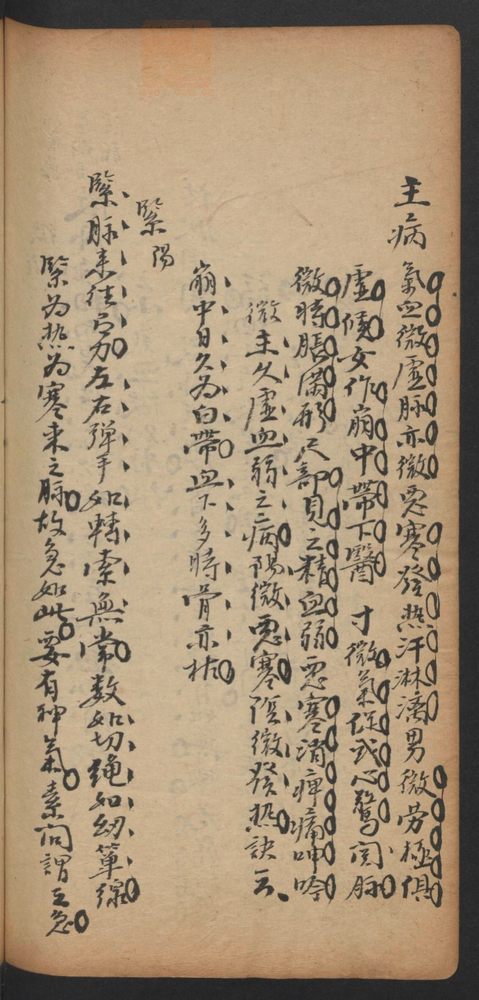 主病 氣血微虛脉亦微惡寒發熱汗淋漓男微勞極俱
虛候女作崩中帶下醫 寸微氣促或心驚関脉
微時脹滿形尺部見之精血弱惡寒消痺痛呻吟
微主久虛血弱之病陽微惡寒陰微發熱訣云
崩中日久為白帶血下多時骨亦枯
緊 陽
緊脉來徃有力左右彈手如轉索無常数如切繩如紉箄線
緊为热为寒束之脉故急如此要有神氣素问謂之急